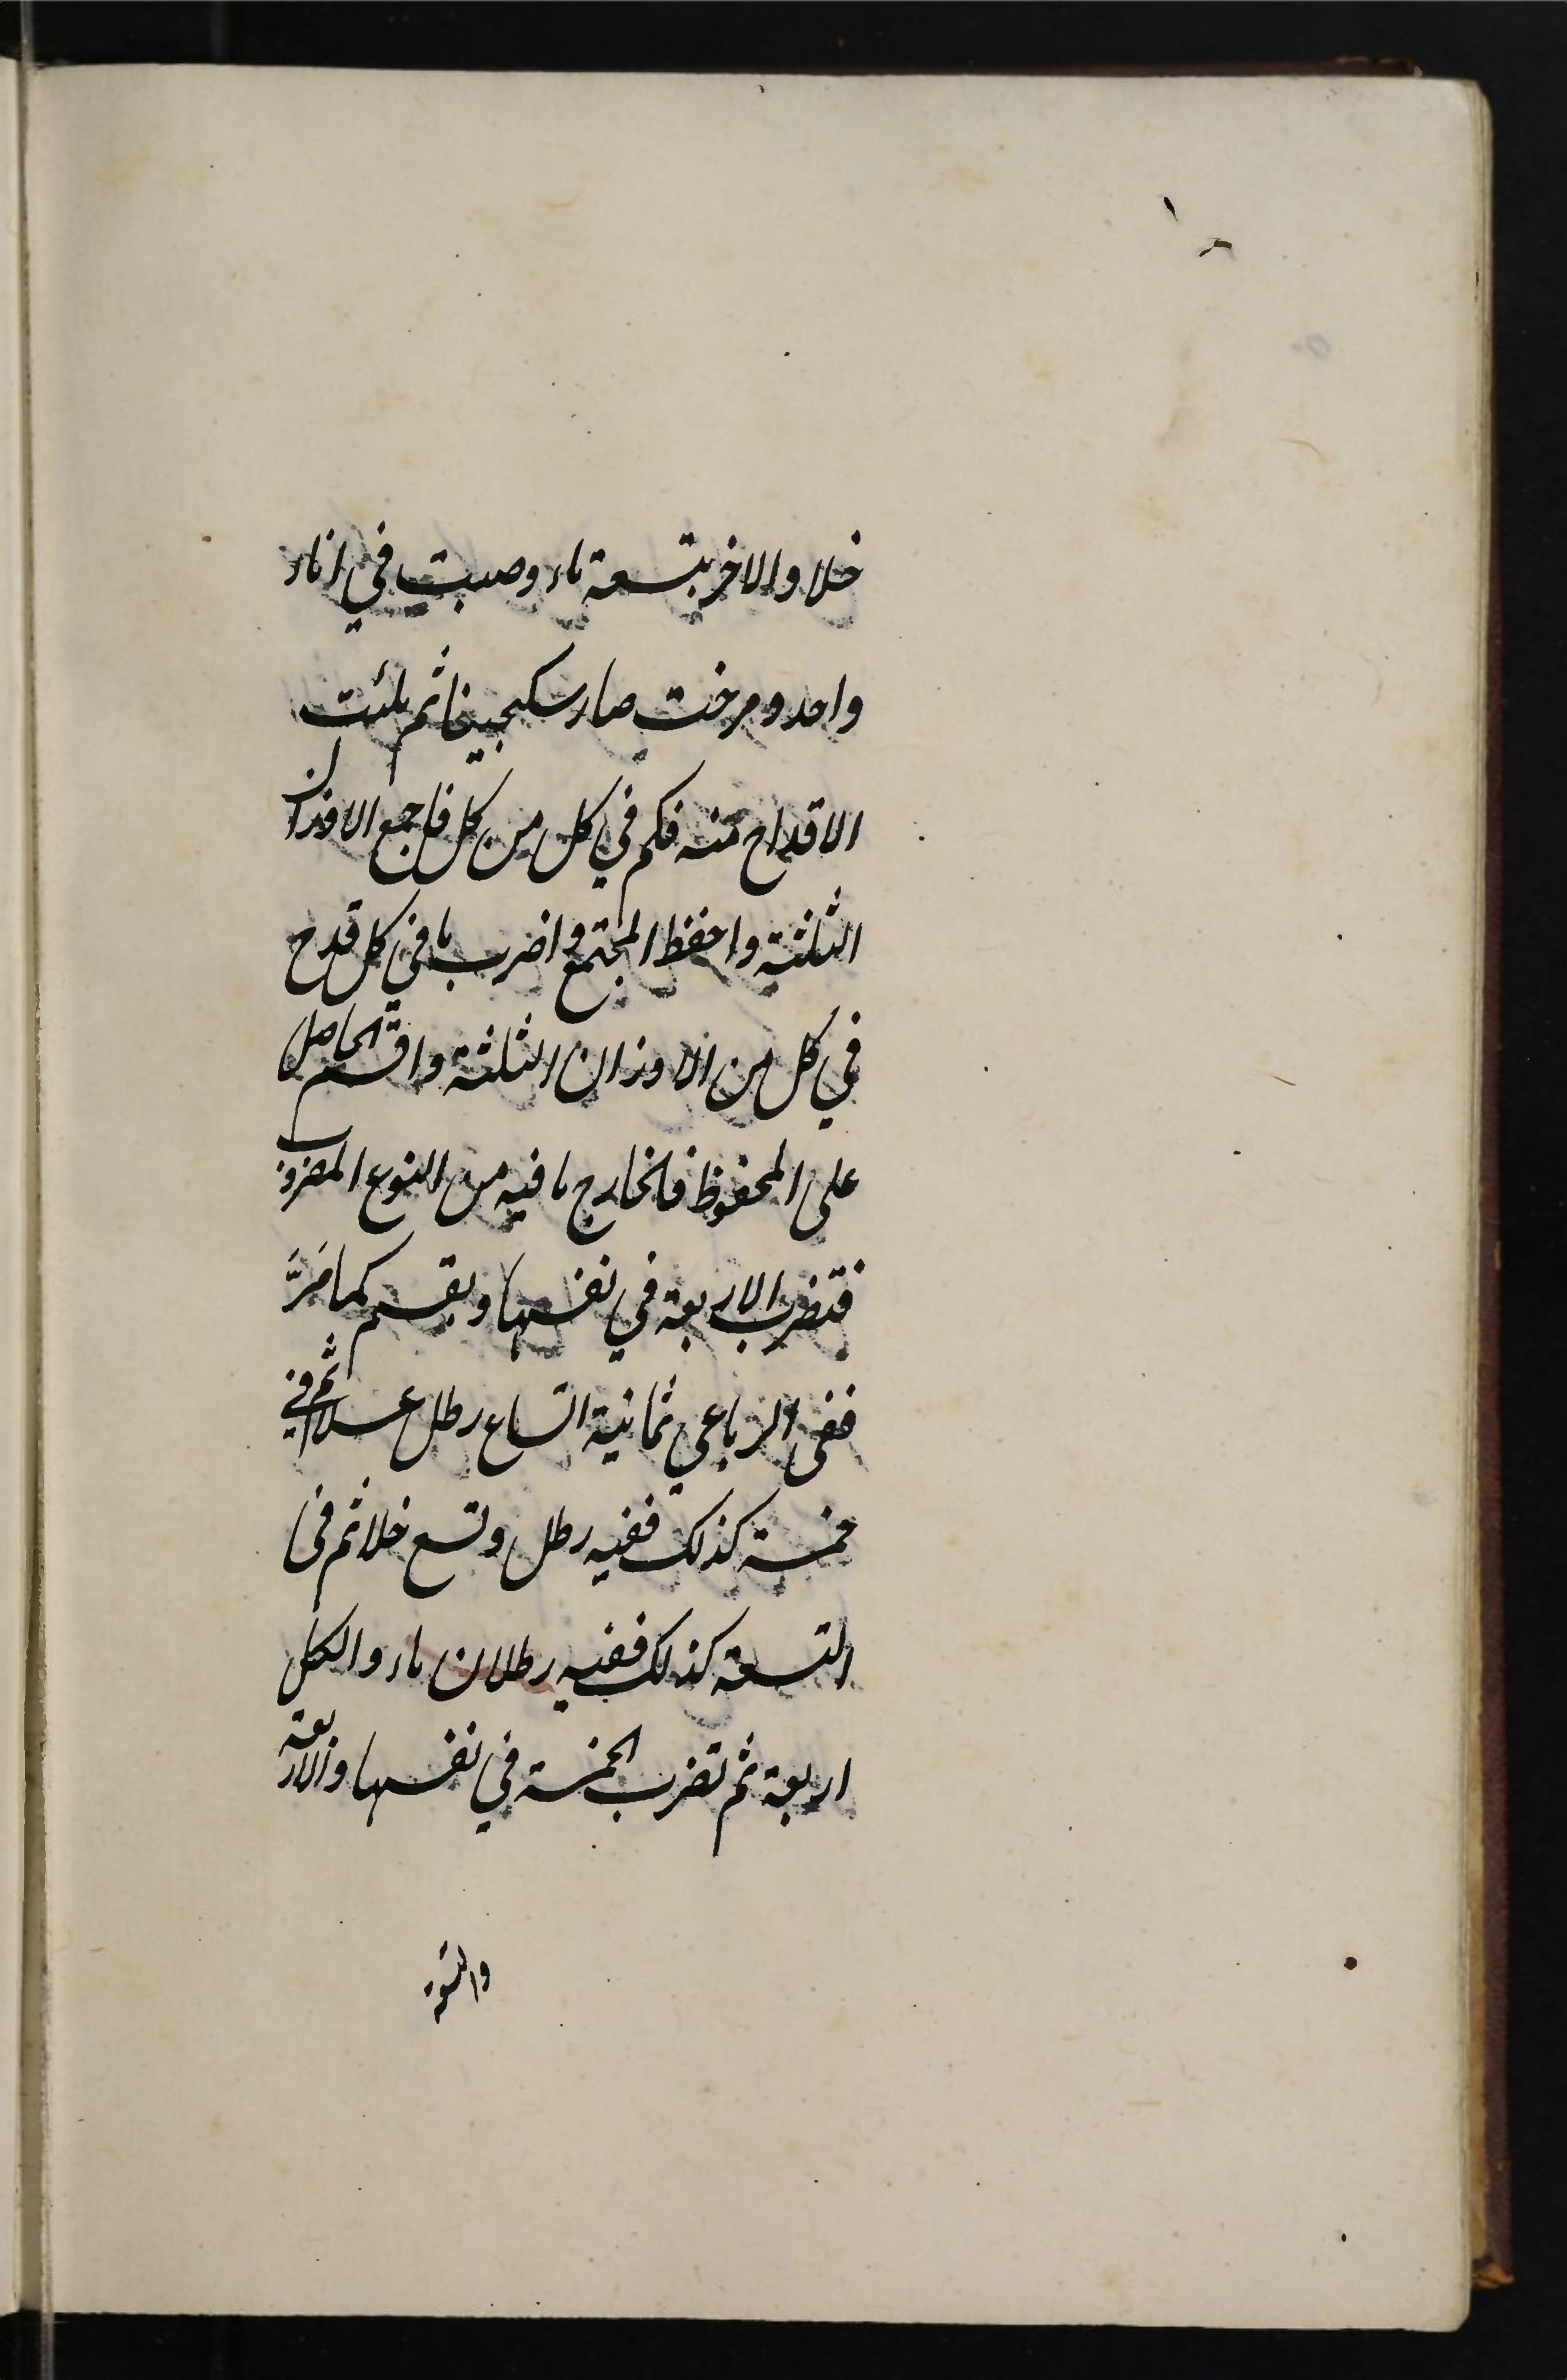 خلا والاخر بتسعة ماء وصبت في اناء
واحد ومزجت صار سكنجبينا ثم ملئت
الاقداح منه فكم في كل من كل فاجمع الاوزان
الثلثة واحفظ المجتمع واضرب ما في كل قدح
في كل من الاوزان الثلثة واقسم الحاصل
على المحفوظ فالخارج ما فيه من النوع المضروب
فتضرب الاربعة في نفسها ويقسم كما مَرَّ
ففى الرباعي ثمانية اتساع رطل عسلا ثم في
خمسة كذلك ففيه رطل وتسع خلا ثم فى
التسعة كذلك ففيه رطلان ماء والكل
اربعة ثم تضرب الخمسة في نفسها والاربعة
والتسعة